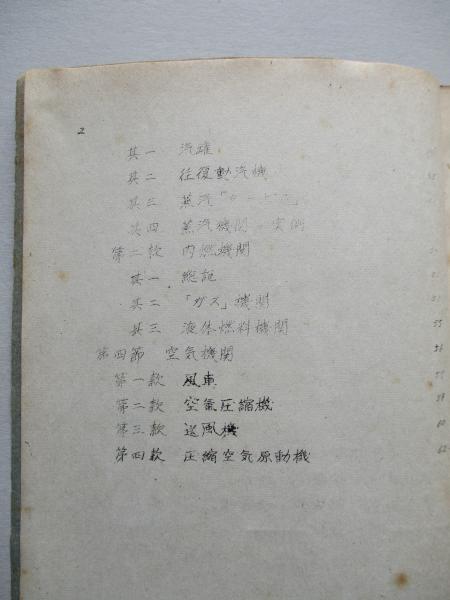 2
其一 汽罐
其二 往復動汽機
其三 蒸汽「タービン」
其四 蒸汽機関ノ実例
第二款 内燃機関
其一 総説
其二 「ガス」機関
其三 液体燃料機関 55
第四節 空気機関 56
第一款 風車 57
第二款 空気圧縮機 58
第三款 送風機 60
第四款 圧縮空気原動機 62